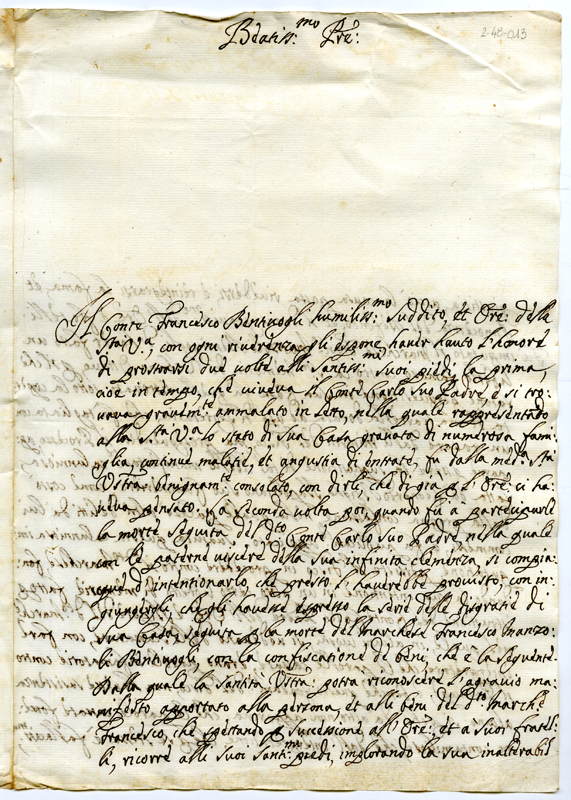 Beatiss:mo Pre:
2-48-013
Il Conte Francesco Bentivogli humiliss:mo suddito, et Ore: della
Sta Va, con ogni riverenza gli espone, haver hauto l'honore
di prostrarsi due volte alli santiss:mi suoi piedi, la prima,
cioè in tempo, che viveva il Conte Carlo suo Padre, e si tro:
vava gravemte ammalato in letto, nella quale rappresentado
alla Sta Va lo stato di sua Casa gravata di numerosa fami:
glia, continue malatie, et angustia di entrate, fu dalla meda: Sta
Vstra benignamte consolato, con dirli, che di già p l'Ore: ci ha:
veva pensato. La seconda volta poi, quando fu a participarle
la morte seguita del dto Conte Carlo suo Padre, nella quale
con le paterne viscere della sua infinita clemenza, si compia:
di intentionarlo, che presto l'haverebbe provisto, con in:
giungerli, che gli havesse espresso la serie delle disgratie di
sua Casa, seguita p la morte del Marchese Francesco Manzo:
li Bentivogli, con la confiscatione de beni, che è la seguente.
Dalla quale la Santità Vstra: potrà riconoscere l'agravio ma:
nifesto, apportato alla persona, et alli beni del dto Marche
Francesco, che spettando p successione all'Ore:, et a suoi fratel:
li, ricorre alli suoi Santi:mi piedi, implorando la sua inalterabil